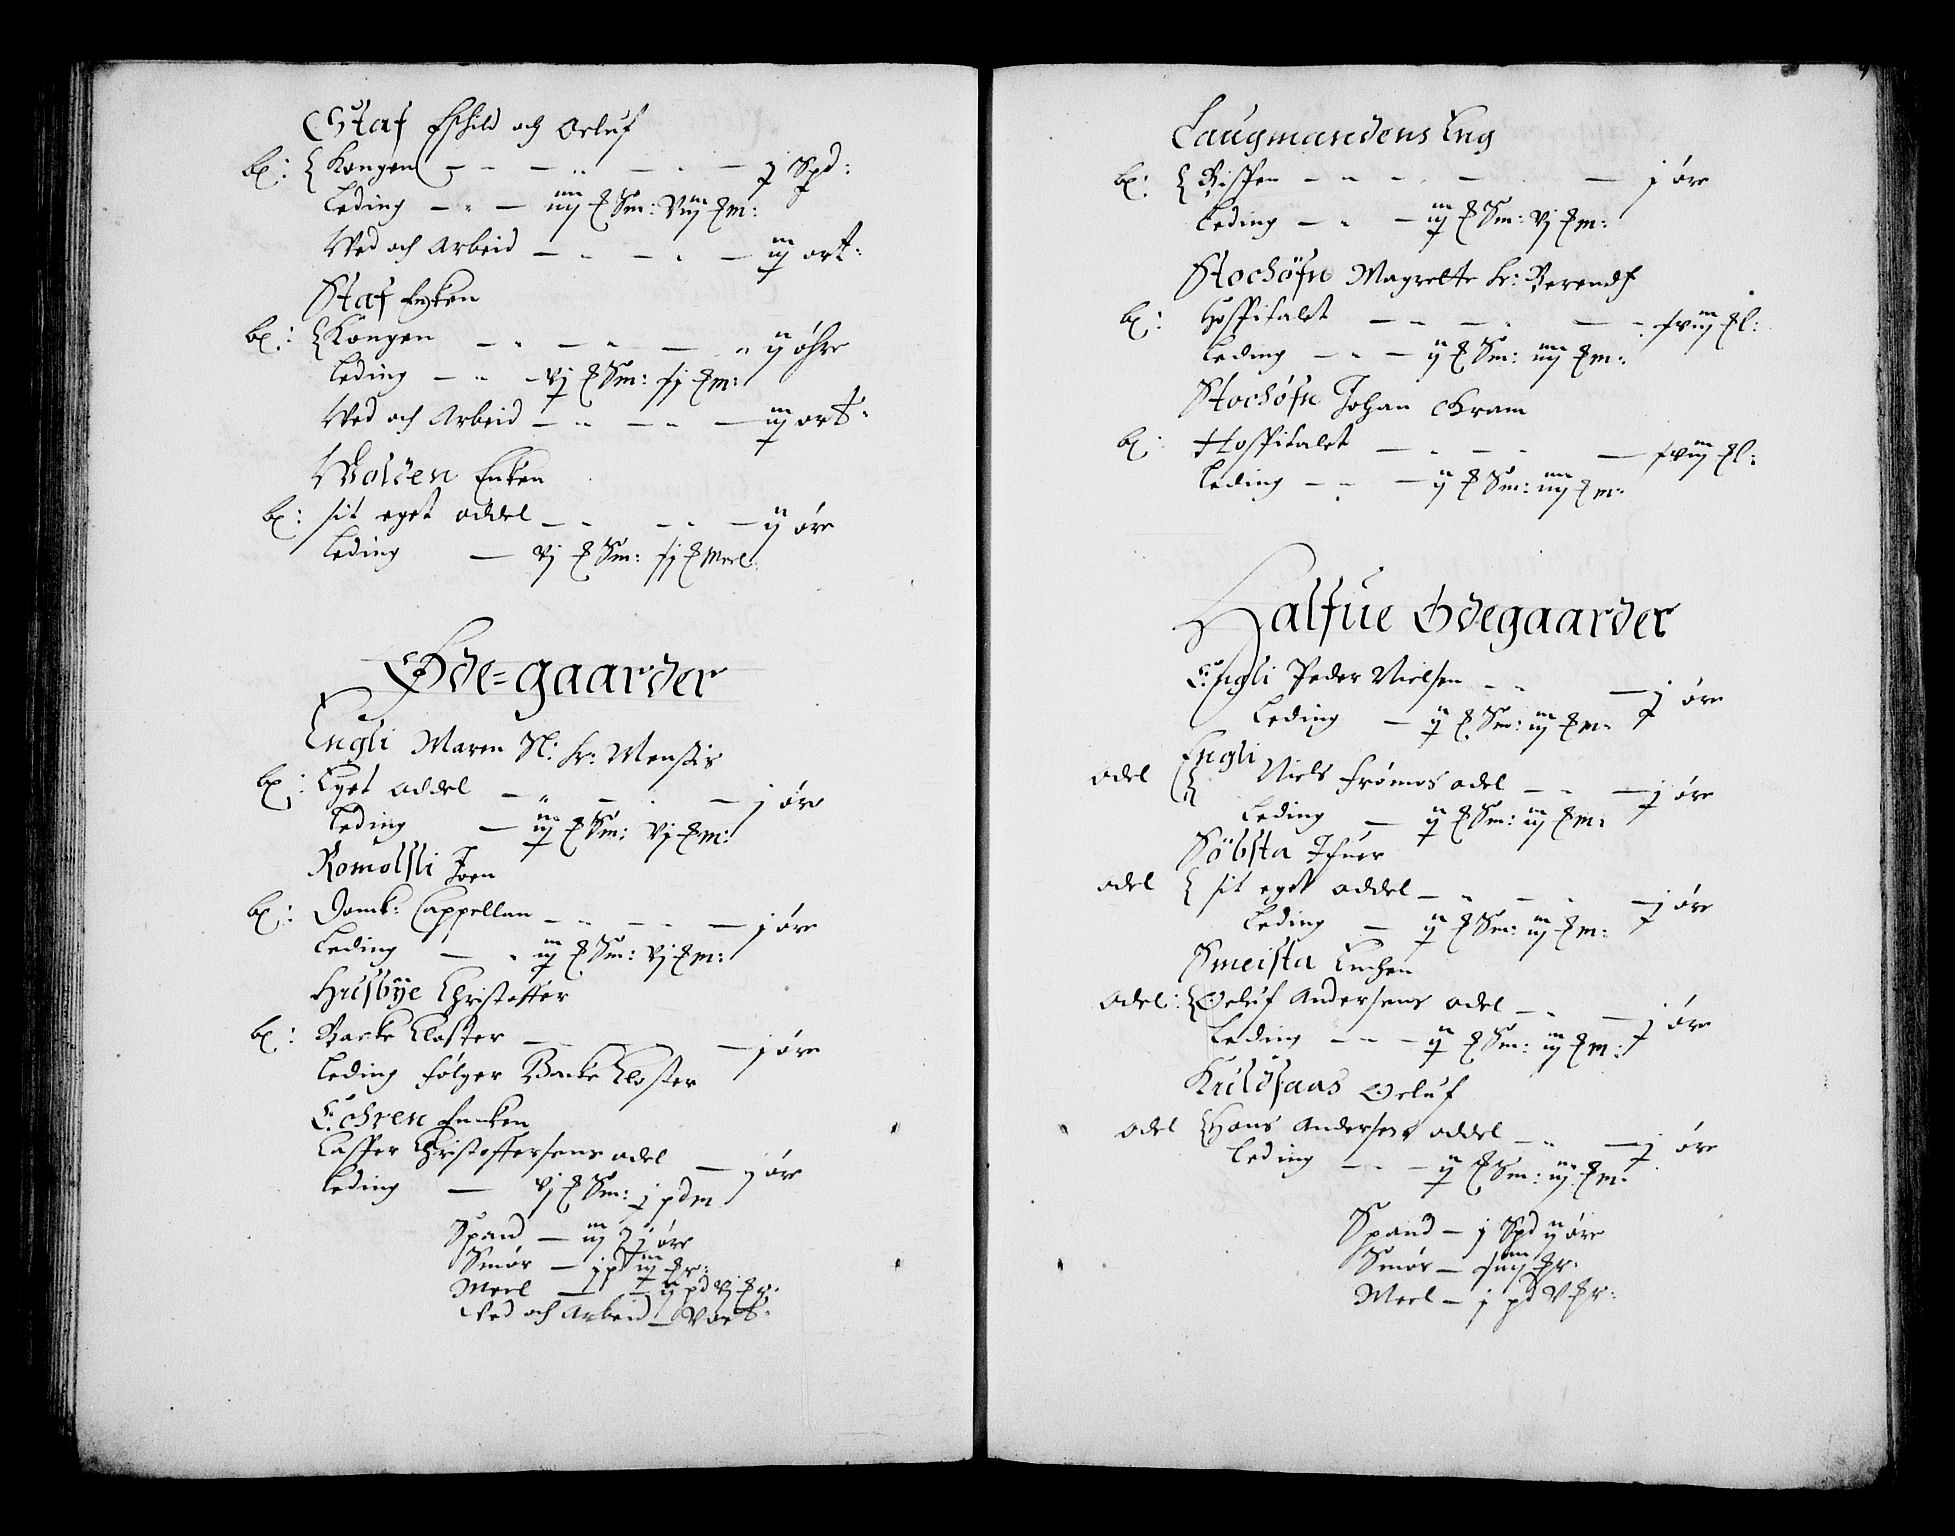 Staf Eschild och Oeluf
bx: Kongen — — — — j Spd:
Leding — — iiij ℔ Sm: viij ℔ m:
Ved och Arbeid — — — iij ort:
Staf Encken
bx: Kongen — — — — ij øhre
Leding — — vj ℔ Sm: xij ℔ m:
Ved och Arbeid — — — iij ort:
Volden Enken
bx: sit eget oddel — — — ij øre
Leding — vj ℔ Sm: xij ℔ Meel:
Øde=gaarder
Eugli Maren Sl: Hr: Mensis
bx: Eget oddel — — — j øre
Leding — iij ℔ Sm: vj ℔ m:
Romolsli Joen
bx: Domk: Cappellan — — — j øre
Leding — iij ℔ Sm: vj ℔ m:
Husbye Christoffer
bx: Backe Closter — — — j øre
Leding følger Backe Closter
Encken
Casper Christoffersens odel — j øre
Leding — vj ℔ Sm: j pd m
Spand — iij j øre
Smør — j pd iij ℔r:
Meel — ij pd vj ℔r:
Ved och Arbeid — V ort:
Laugmandens Eng
bx: Bispen — — — — j øre
Leding — — iij ℔ Sm: vj ℔ m:
Stochøfn Magrette Hr: Berends
bx: Hospitalet — — — xviij ℔l:
Leding — — ij ℔ Sm: iiij ℔ m:
Stochøfn Johan Kram
bx: Hospitalet — — — xviij ℔l:
Leding — — ij ℔ Sm: iiij ℔ m:
Halfue Ødegaarder
Engli Peder Nielsen — — j øre
Leding — ij ℔ Sm: iij ℔ m:
Engli
odel Niels Frømos odel — — j øre
Leding — ij ℔ Sm: iij ℔ m:
Søbsta Ifuer
odel sit eget oddel — — — j øre
Leding — ij ℔ Sm: iij ℔ m:
Smeista Enchen
odel: Oeluf Andersens odel — — j øre
Leding — — ij ℔ Sm: iij ℔ m:
Kuldsaas Oeluf
odel Hans Andersens oddel — — j øre
Leding — — ij ℔ Sm: iij ℔ m:
Spand — j Spd ij øre
Smør — xiiij ℔r:
Meel — j pd V ℔r: